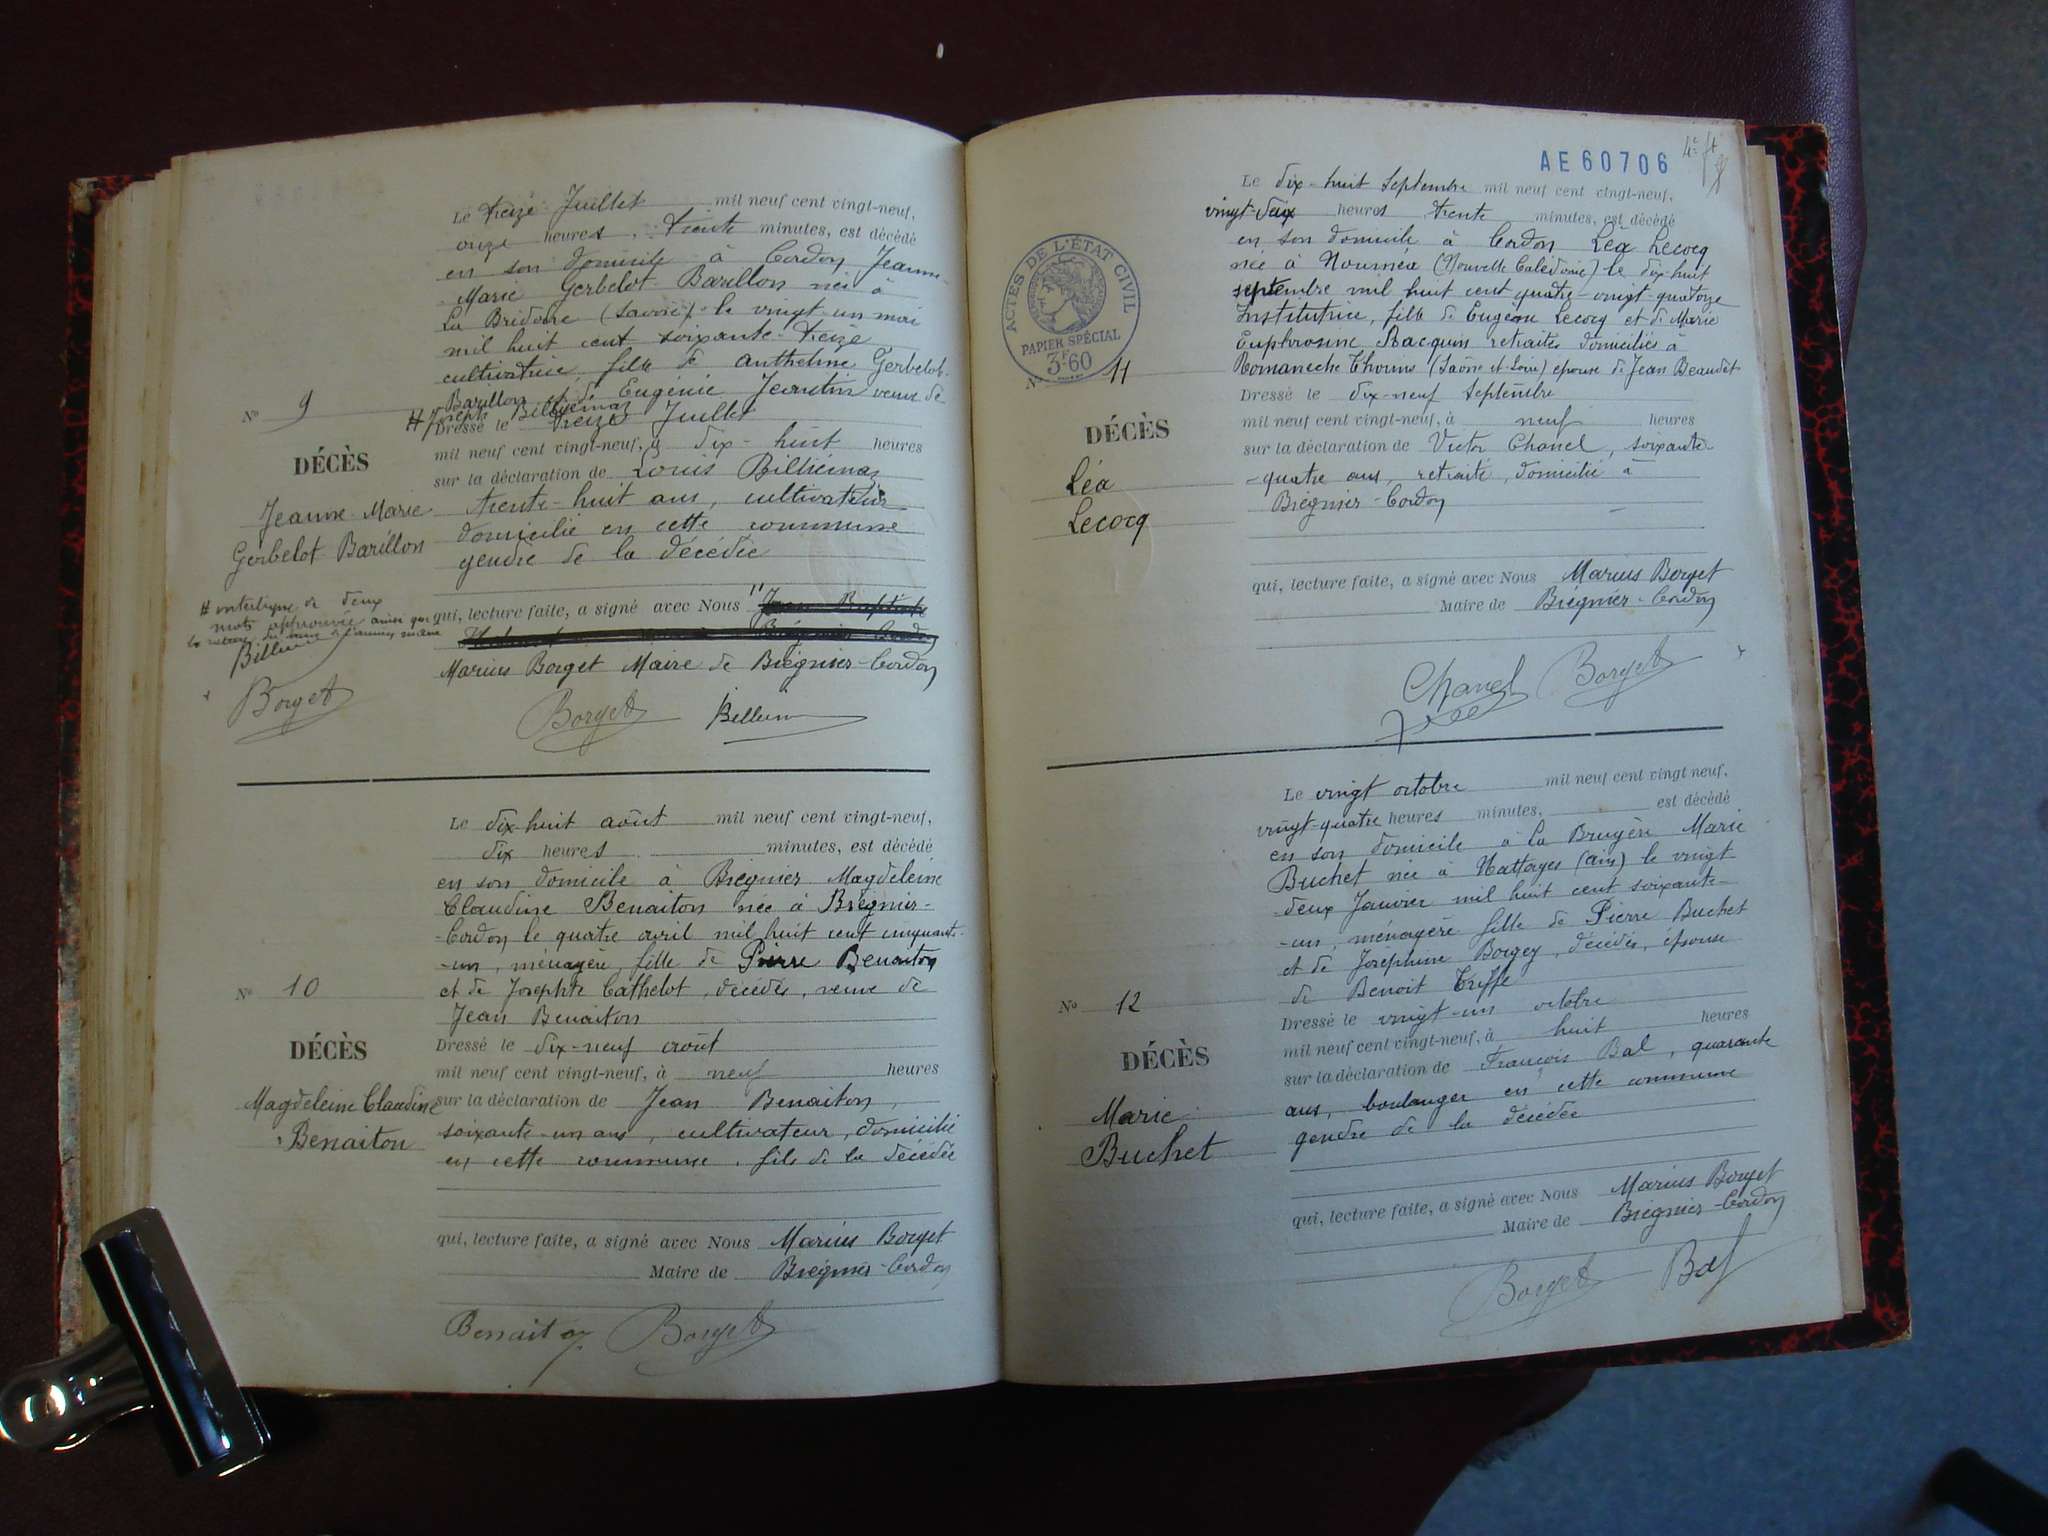 Le treize Juillet mil neuf cent vingt-neuf,
onze heures, trente minutes, est décédé
en son domicile à Cordon Jeanne-
Marie Gerbelot-Barillon née à
La Bridoire (Savoie) le vingt-un mai
mil huit cent soixante-treize
cultivatrice, fille de Anthelme Gerbelot-
Barillon et de Eugénie Jeantin veuve de
# Joseph Billiémaz
No 9
DÉCÈS
Jeanne-Marie
Gerbelot-Barillon
Dressé le treize Juillet
mil neuf cent vingt-neuf, à dix-huit heures
sur la déclaration de Louis Billiémaz
trente-huit ans, cultivateur
domicilié en cette commune
gendre de la décédée
qui, lecture faite, a signé avec Nous
Marius Borget Maire de Brégnier-Cordon
# interligne de deux
mots approuvée ainsi que
Borget
Borget
No 10
DÉCÈS
Magdeleine Claudine
Benaiton
Le dix-huit août mil neuf cent vingt-neuf,
dix heures minutes, est décédé
en son domicile à Brégnier Magdeleine
Claudine Benaiton née à Brégnier-
-Cordon le quatre avril mil huit cent cinquante-
-un, ménagère, fille de Pierre Benaiton
et de Josephte Cathelot, décédés, veuve de
Jean Benaiton
Dressé le dix-neuf août
mil neuf cent vingt-neuf, à neuf heures
sur la déclaration de Jean Benaiton,
soixante-un ans, cultivateur, domicilié
en cette commune, fils de la décédée
qui, lecture faite, a signé avec Nous Marius Borget
Maire de Brégnier-Cordon
Benaiton Borget
AE 60706
ACTES DE L'ÉTAT CIVIL
PAPIER SPÉCIAL
3F60
No 11
DÉCÈS
Léa
Lecocq
Le dix-huit Septembre mil neuf cent vingt-neuf,
vingt-deux heures trente minutes, est décédé
en son domicile à Cordon Léa Lecocq
née à Nouméa (Nouvelle Calédonie) le dix-huit
septembre mil huit cent quatre-vingt-quatorze
Institutrice, fille de Eugène Lecocq et de Marie
Euphrosine Racquin retraités domiciliés à
Romanèche Thorins (Saône et Loire) épouse de Jean Beaudet
Dressé le dix-neuf Septembre
mil neuf cent vingt-neuf, à neuf heures
sur la déclaration de Victor Chanel, soixante-
-quatre ans, retraité, domicilié à
Brégnier-Cordon
qui, lecture faite, a signé avec Nous Marius Borget
Maire de Brégnier-Cordon
Chanel Borget
No 12
DÉCÈS
Marie
Buchet
Le vingt octobre mil neuf cent vingt neuf,
vingt-quatre heures minutes, est décédé
en son domicile à la Bruyère Marie
Buchet née à Nattages (Ain) le vingt
deux Janvier mil huit cent soixante-
-un, ménagère fille de Pierre Buchet
et de Josephine Borgey, décédés, épouse
de Benoit Triffe
Dressé le vingt-un octobre
mil neuf cent vingt-neuf, à huit heures
sur la déclaration de François Bal, quarante
ans, boulanger en cette commune
gendre de la décédée
qui, lecture faite, a signé avec Nous Marius Borget
Maire de Brégnier-Cordon
Borget Bal